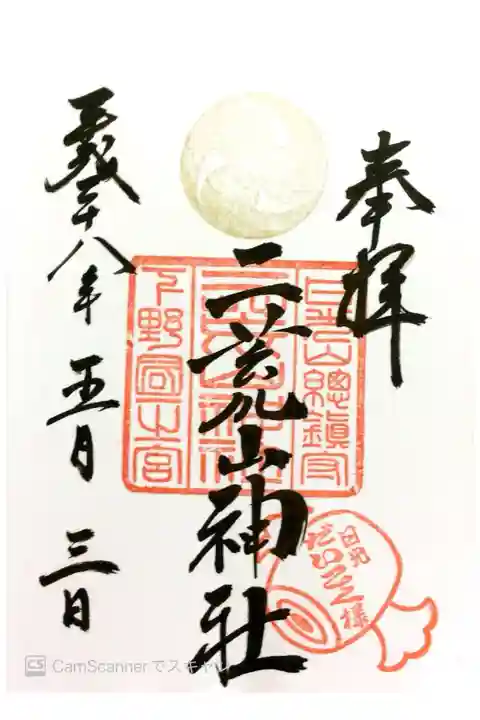 奉拝
二荒山神社
平成二十八年 五月 三日
日光山總鎮守
二荒山神社
下野国一之宮
日光
だいこく様
CS CamScannerでスキャン